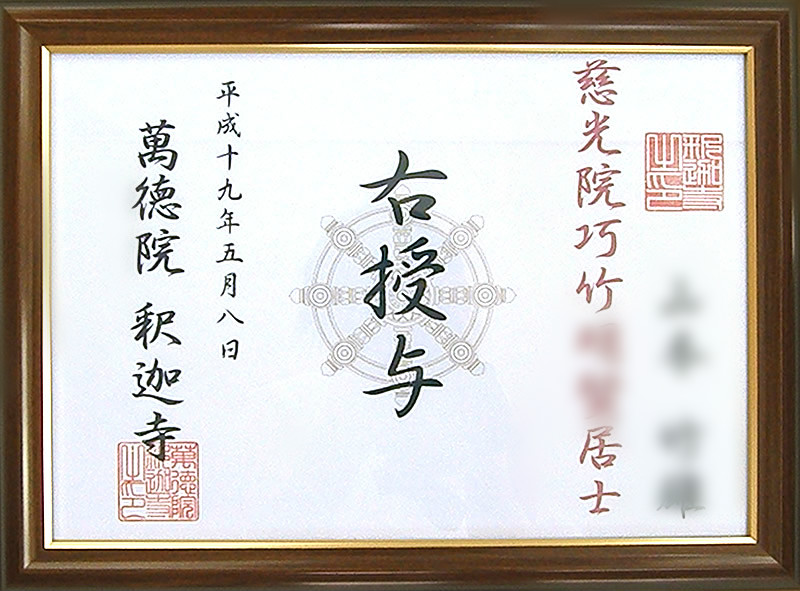 慈光院巧竹居士
右授与
平成十九年五月八日
萬徳院 釈迦寺